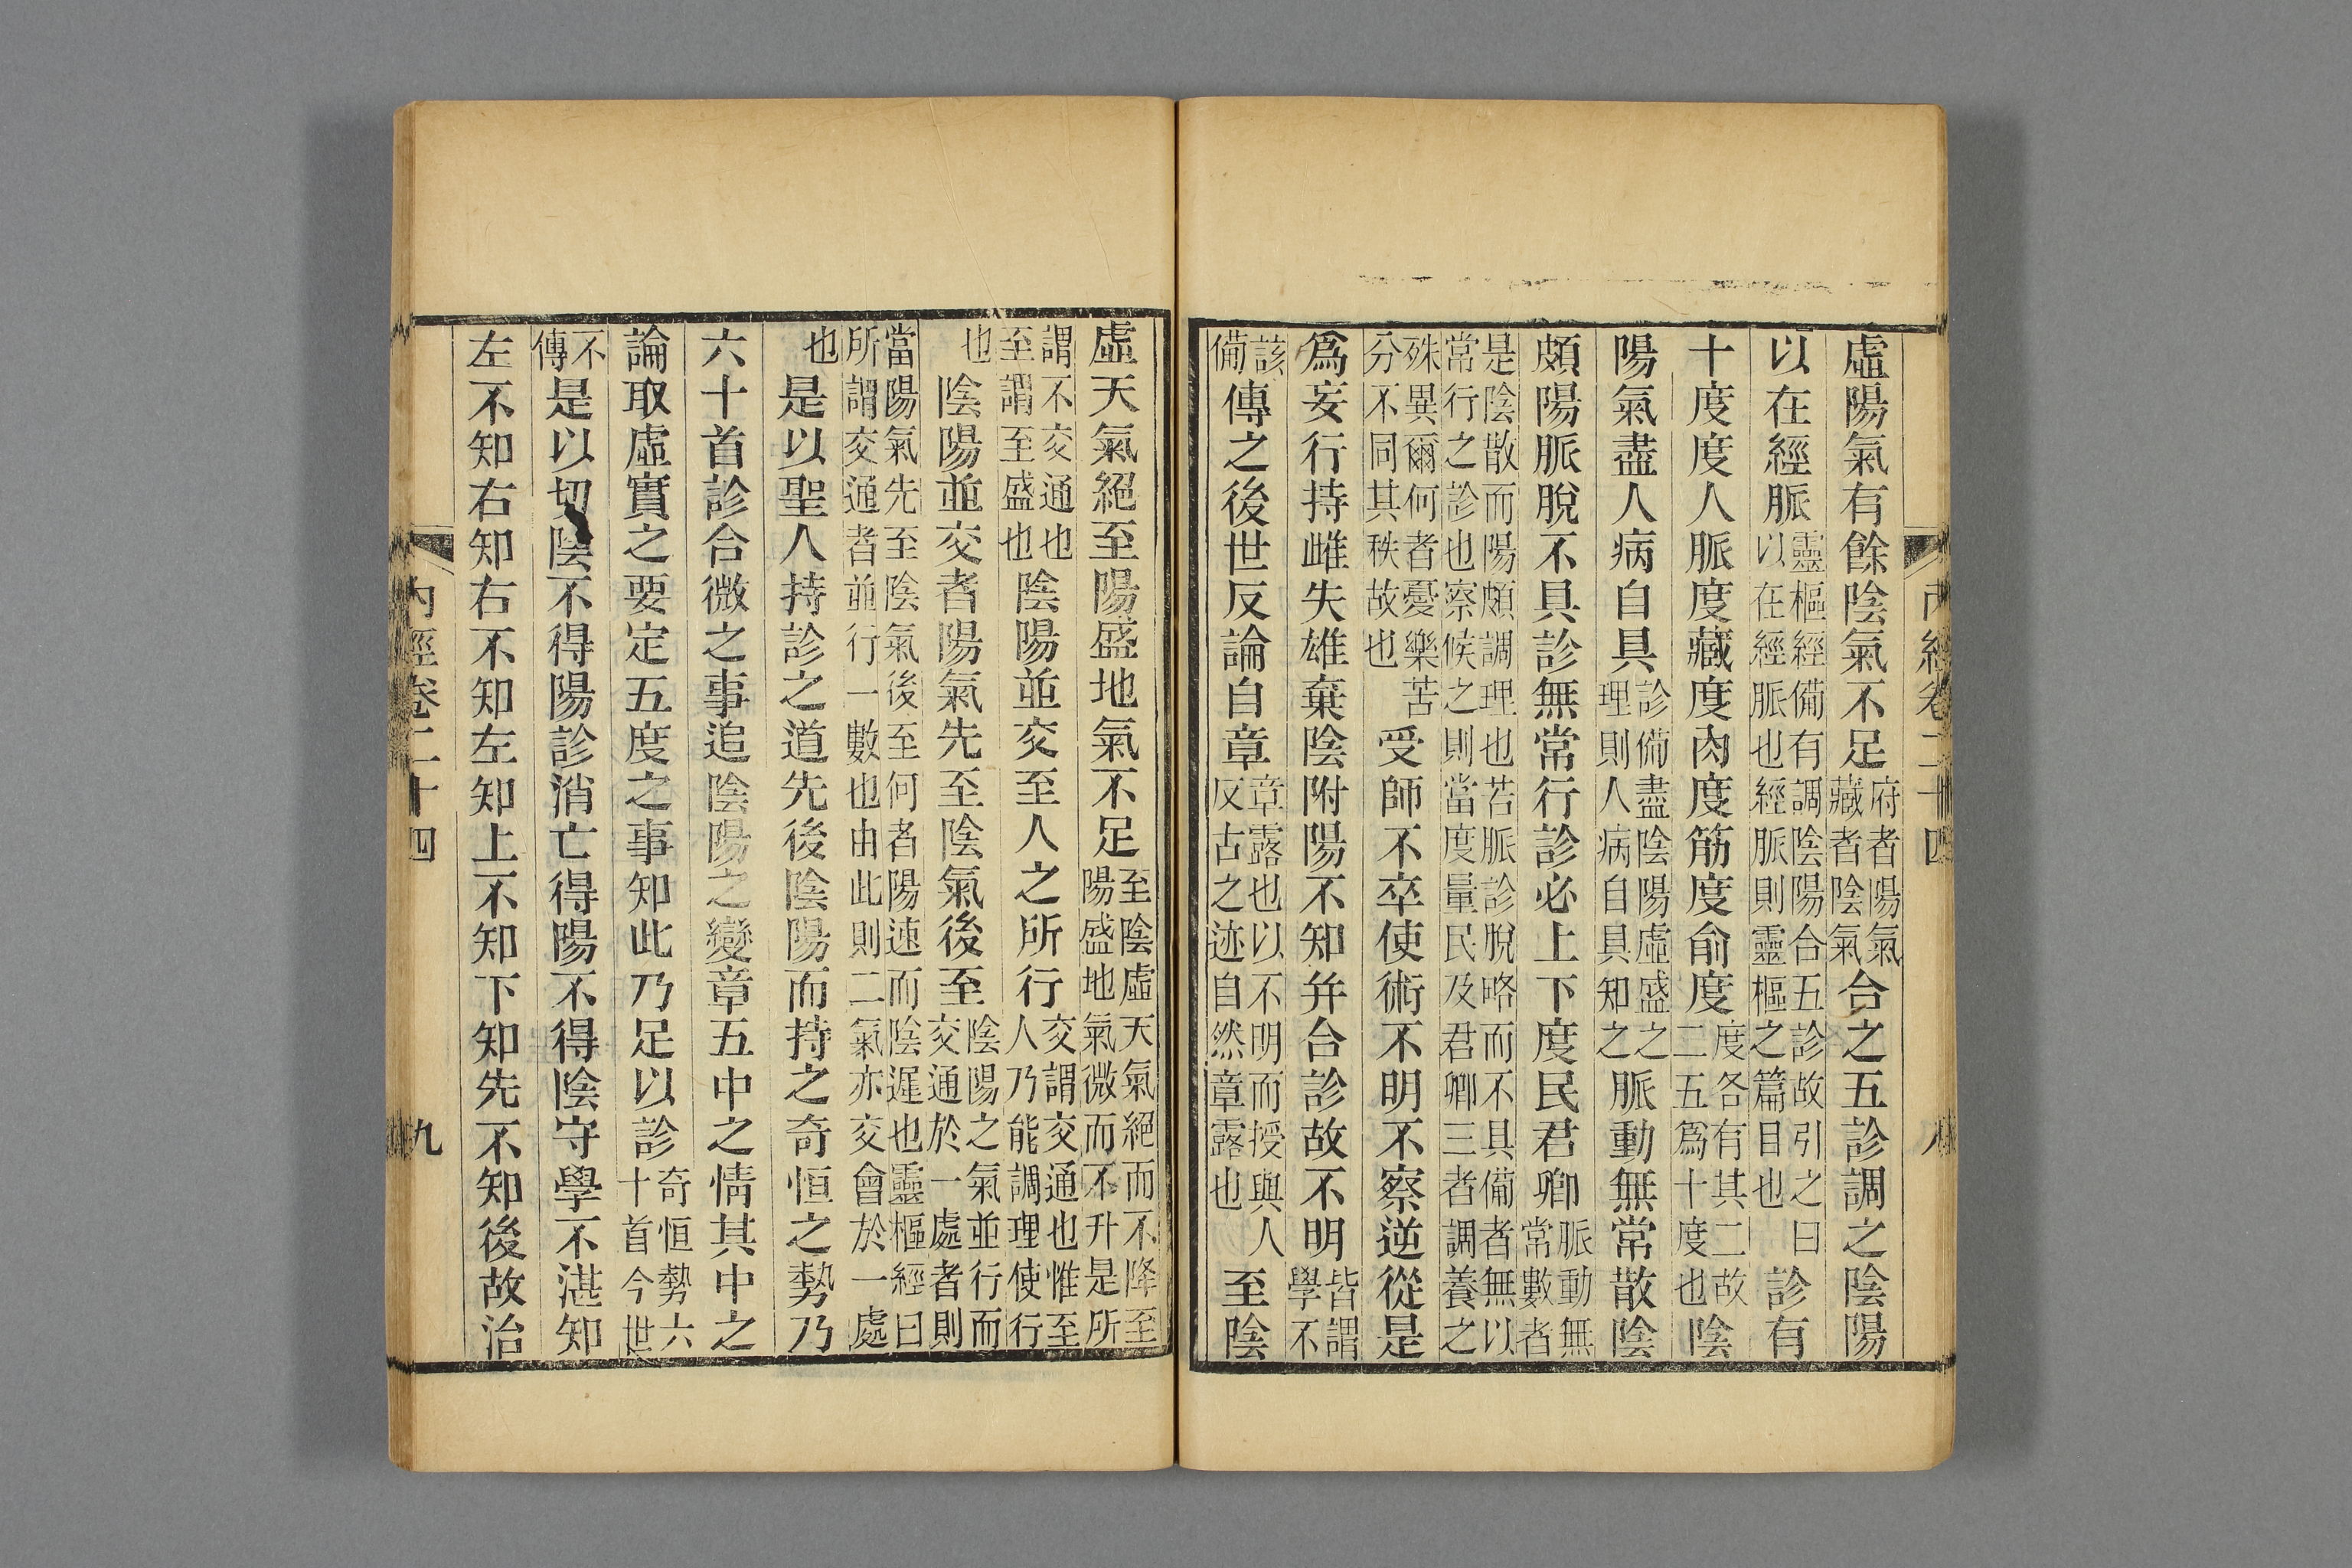 內經卷二十四 八
虛陽氣有餘陰氣不足府者陽氣藏者陰氣合之五診調之陰陽
以在經脈靈樞經備有調陰陽合五診故引之曰以在經脈也經脈則靈樞之篇目也診有
十度度人脈度藏度肉度筋度俞度度各有其二故二五爲十度也陰
陽氣盡人病自具診備盡陰陽虛盛之理則人病自具知之脈動無常散陰
頗陽脈脫不具診無常行診必上下度民君卿脈動無常數者
是陰散而陽頗調理也若脈診脫略而不具備者無以常行之診也察候之則當度量民及君卿三者調養之
殊異爾何者憂樂苦分不同其秩故也受師不卒使術不明不察逆從是
爲妄行持雌失雄棄陰附陽不知并合診故不明皆謂學不
該備傳之後世反論自章章露也以不明而授與人反古之迹自然章露也至陰
虛天氣絕至陽盛地氣不足至陰虛天氣絕而不降至陽盛地氣微而不升是所
謂不交通也至謂至盛也陰陽並交至人之所行交謂交通也惟至人乃能調理使行
也陰陽並交者陽氣先至陰氣後至陰陽之氣並行而交通於一處者則
當陽氣先至陰氣後至何者陽速而陰遲也靈樞經曰所謂交通者並行一數也由此則二氣亦交會於一處
也是以聖人持診之道先後陰陽而持之奇恒之勢乃
六十首診合微之事追陰陽之變章五中之情其中之
論取虛實之要定五度之事知此乃足以診奇恒勢六十首今世
不傳是以切陰不得陽診消亡得陽不得陰守學不湛知
左不知右知右不知左知上不知下知先不知後故治
內經卷二十四 九